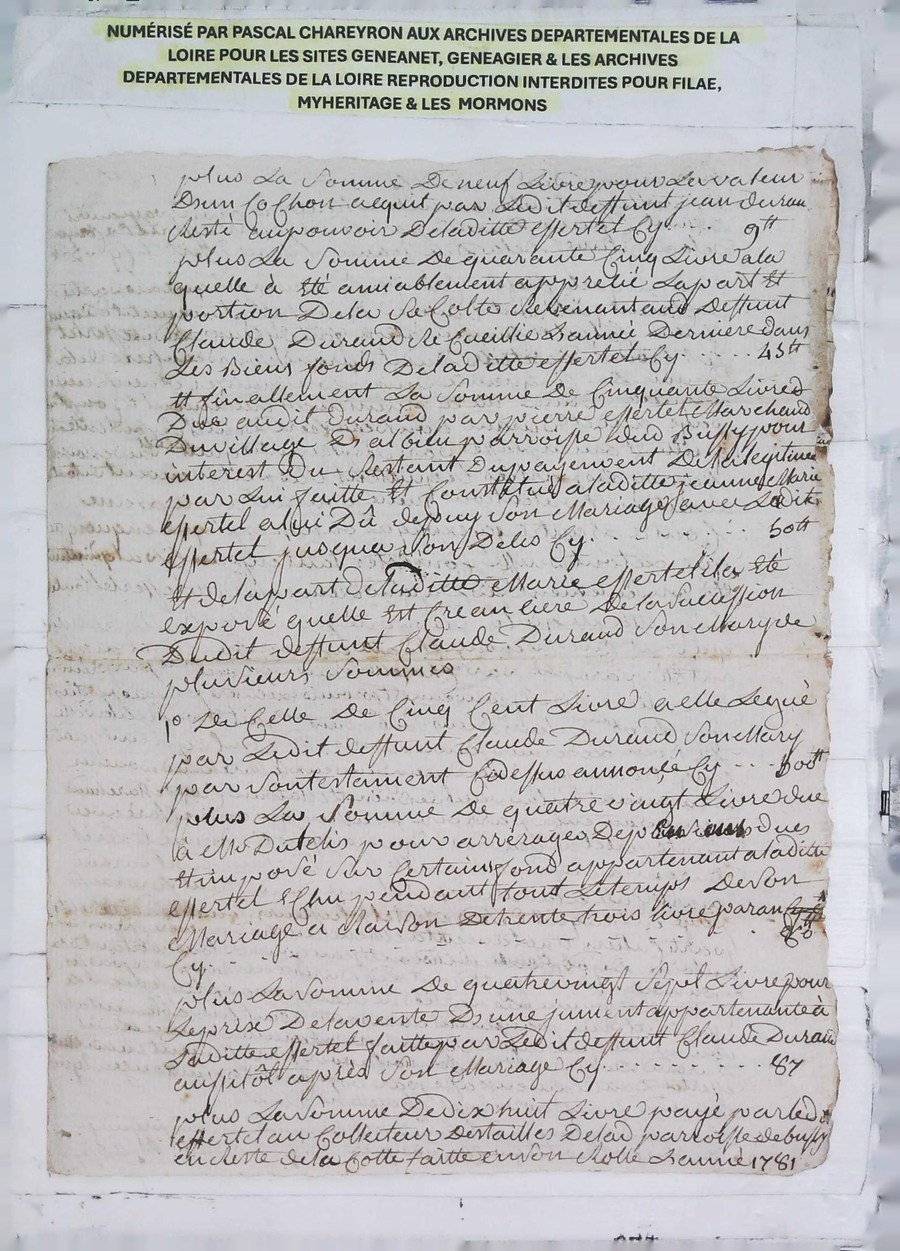 NUMÉRISÉ PAR PASCAL CHAREYRON AUX ARCHIVES DEPARTEMENTALES DE LA
LOIRE POUR LES SITES GENEANET, GENEAGIER & LES ARCHIVES
DEPARTEMENTALES DE LA LOIRE REPRODUCTION INTERDITES POUR FILAE,
MYHERITAGE & LES MORMONS
plus La Somme De neuf Livre pour La valeur
Dun Cochon acquit par Ledit deffunt jean duran
Resté aupouvoir Deladitte effertel Cy.... 9tt
plus La Somme De quarante Cinq Livre a la
quelle à été amiablement apprétié La part Et
portion De la Récolte Revenant aud Deffunt
Claude Durand Recueillie L'année Derniere dans
Les Biens fonds Deladitte effertel Cy...... 45tt
Et finallement La Somme De Cinquante Livres
Due audit Durand par pierre effertel Marchand
Du village parroisse dud Bussy pour
interest Du Restant Du payement De la legitime
par Lui faitte Et Constitué a laditte jeanne Marie
effertel a lui Dû depuy Son Mariage avec Ledit
effertel jusqua Son Déces Cy....... 50tt
Et de la part de laditte Marie effertel il a été
exposé quelle Est Creanciere De la Succession
Dudit deffunt Claude Durand Son Mary de
plusieurs Sommes
1º De Celle De Cinq Cent Livre a elle Legué
par Ledit deffunt Claude Durand Son Mary
par Son testament Cydessus annoncé Cy.... 500tt
plus La Somme De quatre vingt Livre due
à Mr Dutelis pour arrérages De dues
Et imposé Sur Certains fond appartenant a laditte
effertel pendant tout Le temps De Son
Mariage a Raison De trente trois livre par an
Cy........ 80tt
plus La Somme De quatrevingt Sept Livre pour
Le prix De la vente D'une jument appartenante à
Laditte effertel faitte par Ledit deffunt Claude Durand
aussitôt après Son Mariage Cy........ 87
plus La Somme De dix huit Livre payé par led.
effertel au Collecteur Des tailles De lad parroisse de bussy
en Reste de la Cotte faitte en Son Rolle L'année 1781